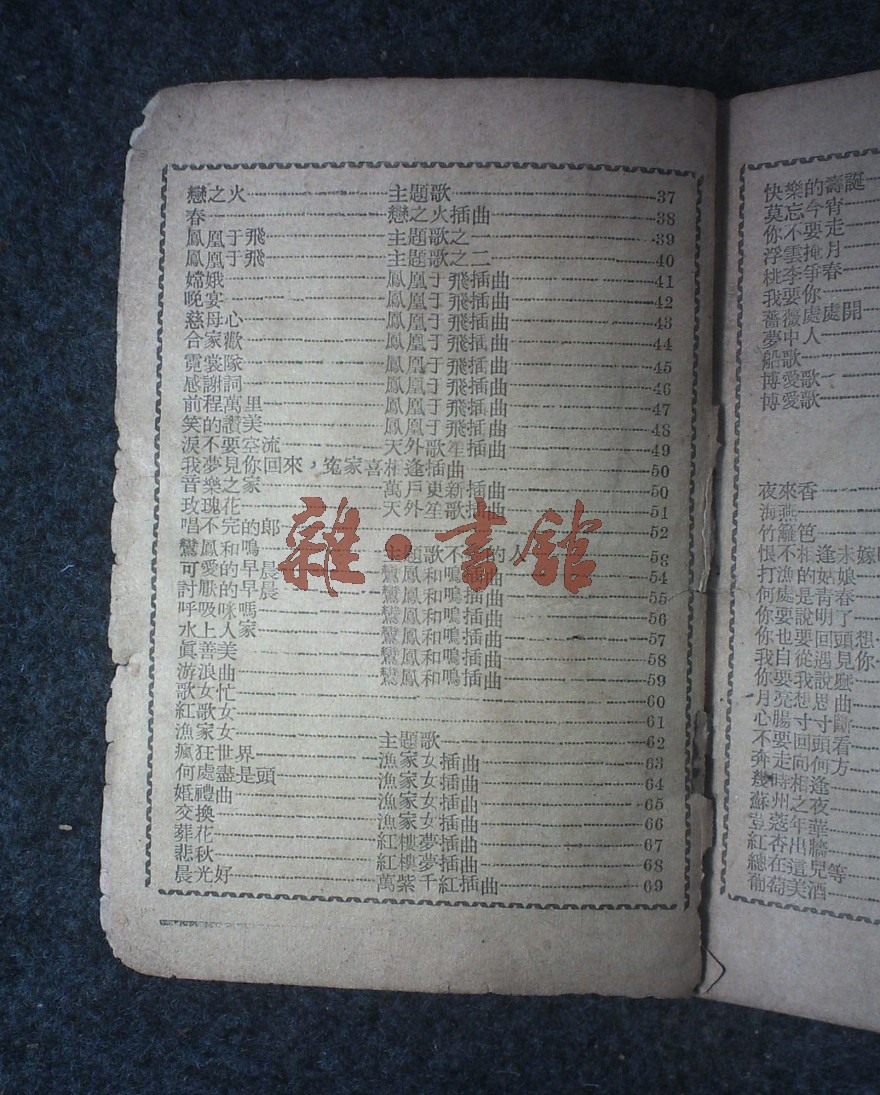 戀之火 主題歌 37
春 戀之火插曲 38
鳳凰于飛 主題歌之一 39
鳳凰于飛 主題歌之二 40
嫦娥 鳳凰于飛插曲 41
晚宴 鳳凰于飛插曲 42
慈母心 鳳凰于飛插曲 43
合家歡 鳳凰于飛插曲 44
霓裳隊 鳳凰于飛插曲 45
感謝詞 鳳凰于飛插曲 46
前程萬里 鳳凰于飛插曲 47
笑的讚美 鳳凰于飛插曲 48
淚不要空流 天外歌笙插曲 49
我夢見你回來,寃家喜相逢插曲 50
音樂之家 萬戶更新插曲 50
玫瑰花 天外笙歌插曲 51
唱不完的郎 52
鸞鳳和鳴 主題歌不 的人 53
可愛的早晨 鸞鳳和鳴插曲 54
討厭的早晨 鸞鳳和鳴插曲 55
呼吸咪嗎 鸞鳳和鳴插曲 56
水上人家 鸞鳳和鳴插曲 57
眞善美 鸞鳳和鳴插曲 58
游浪曲 鸞鳳和鳴插曲 59
歌女忙 60
紅歌女 61
漁家女 主題歌 62
瘋狂世界 漁家女插曲 63
何處盡是頭 漁家女插曲 64
婚禮曲 漁家女插曲 65
交換 漁家女插曲 66
葬花 紅樓夢插曲 67
悲秋 紅樓夢插曲 68
晨光好 萬紫千紅插曲 69
雜·書館
快樂的壽誕
莫忘今宵
你不要走
浮雲掩月
桃李爭春
我要你
薔薇處處開
夢中人
船歌
博愛歌
博愛歌
夜來香
海燕
竹籬笆
恨不相逢未嫁
打漁姑娘
何處是青春
你要說明了
你也要回頭想
我自從遇見你
你要我說麼
月亮想思曲
心腸寸寸斷
不要回頭看
奔走向何方
幾時相逢
蘇州之夜
荳蔻年華
紅杏出牆
總在這兒等
葡萄美酒